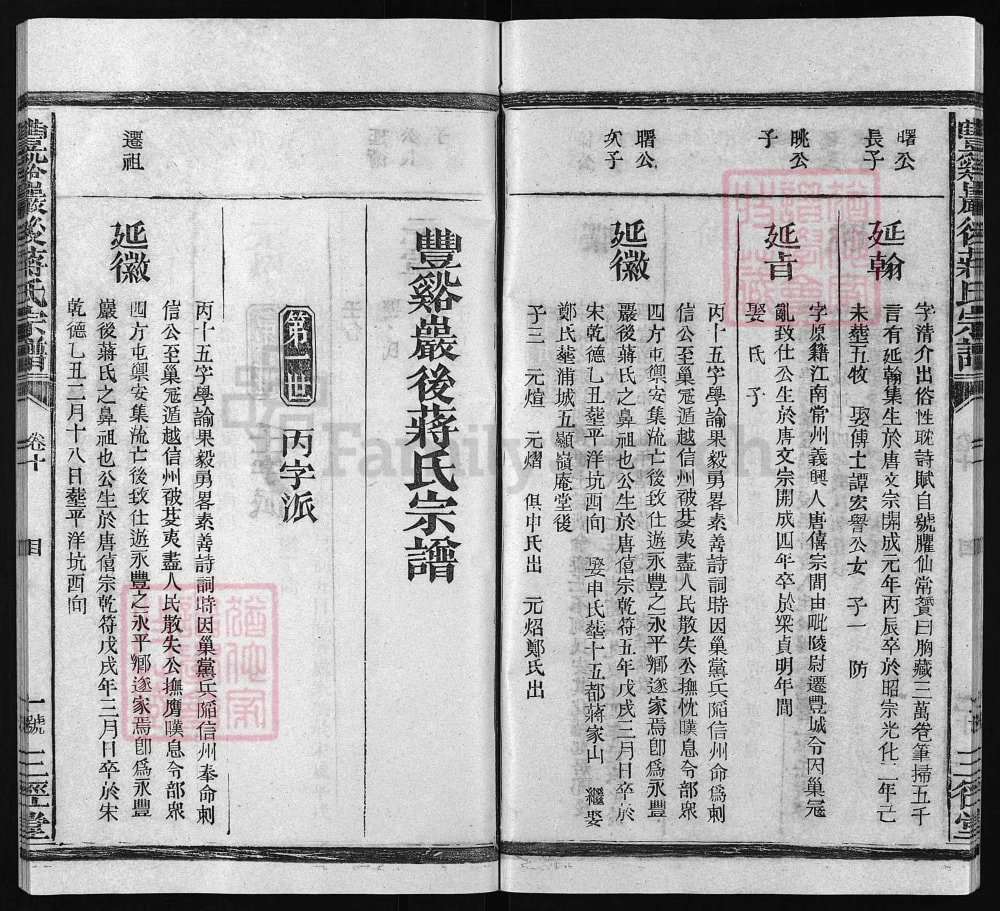 豐谿巖後蔣氏宗譜
三徑堂
曙公
長子
延翰
字清介出俗性耽詩賦自號臞仙常贊曰胸藏三萬卷筆掃五千
言有延翰集生於唐文宗開成元年丙辰卒於昭宗光化二年亡
未塟五牧 娶傅士譚宏譽公女 子一 防
眺公
子
延㫖
字原籍江南常州義興人唐僖宗間由毗陵尉遷豐城令因巢冦
亂致仕公生於唐文宗開成四年卒於梁貞明年間
娶 氏 子
曙公
次子
延徽
丙十五字學論果毅勇畧素善詩詞時因巢黨兵陷信州命爲刺
信公至巢冦遁越信州被芟夷盡人民散失公撫忱嘆息令部衆
四方屯禦安集流亡後致仕遊永豐之永平鄉遂家焉卽爲永豐
巖後蔣氏之鼻祖也公生於唐僖宗乾符五年戊戌三月日卒於
宋乾德乙丑塟平洋坑酉向 娶申氏塟十五都蔣家山 繼娶
鄭氏塟浦城五顯嶺庵堂後
子三 元煊 元熠 俱申氏出 元炤鄭氏出
豐谿巖後蔣氏宗譜
第一世 丙字派
遷祖
延徽
丙十五字學論果毅勇畧素善詩詞時因巢黨兵陷信州奉命刺
信公至巢冦遁越信州被芟夷盡人民散失公撫膺嘆息令部衆
四方屯禦安集流亡後致仕遊永豐之永平鄉遂家焉卽爲永豐
巖後蔣氏之鼻祖也公生於唐僖宗乾符戊戌年三月日卒於宋
乾德乙丑二月十八日塟平洋坑酉向
豐谿巖後蔣氏宗譜
卷十
一號
三徑堂